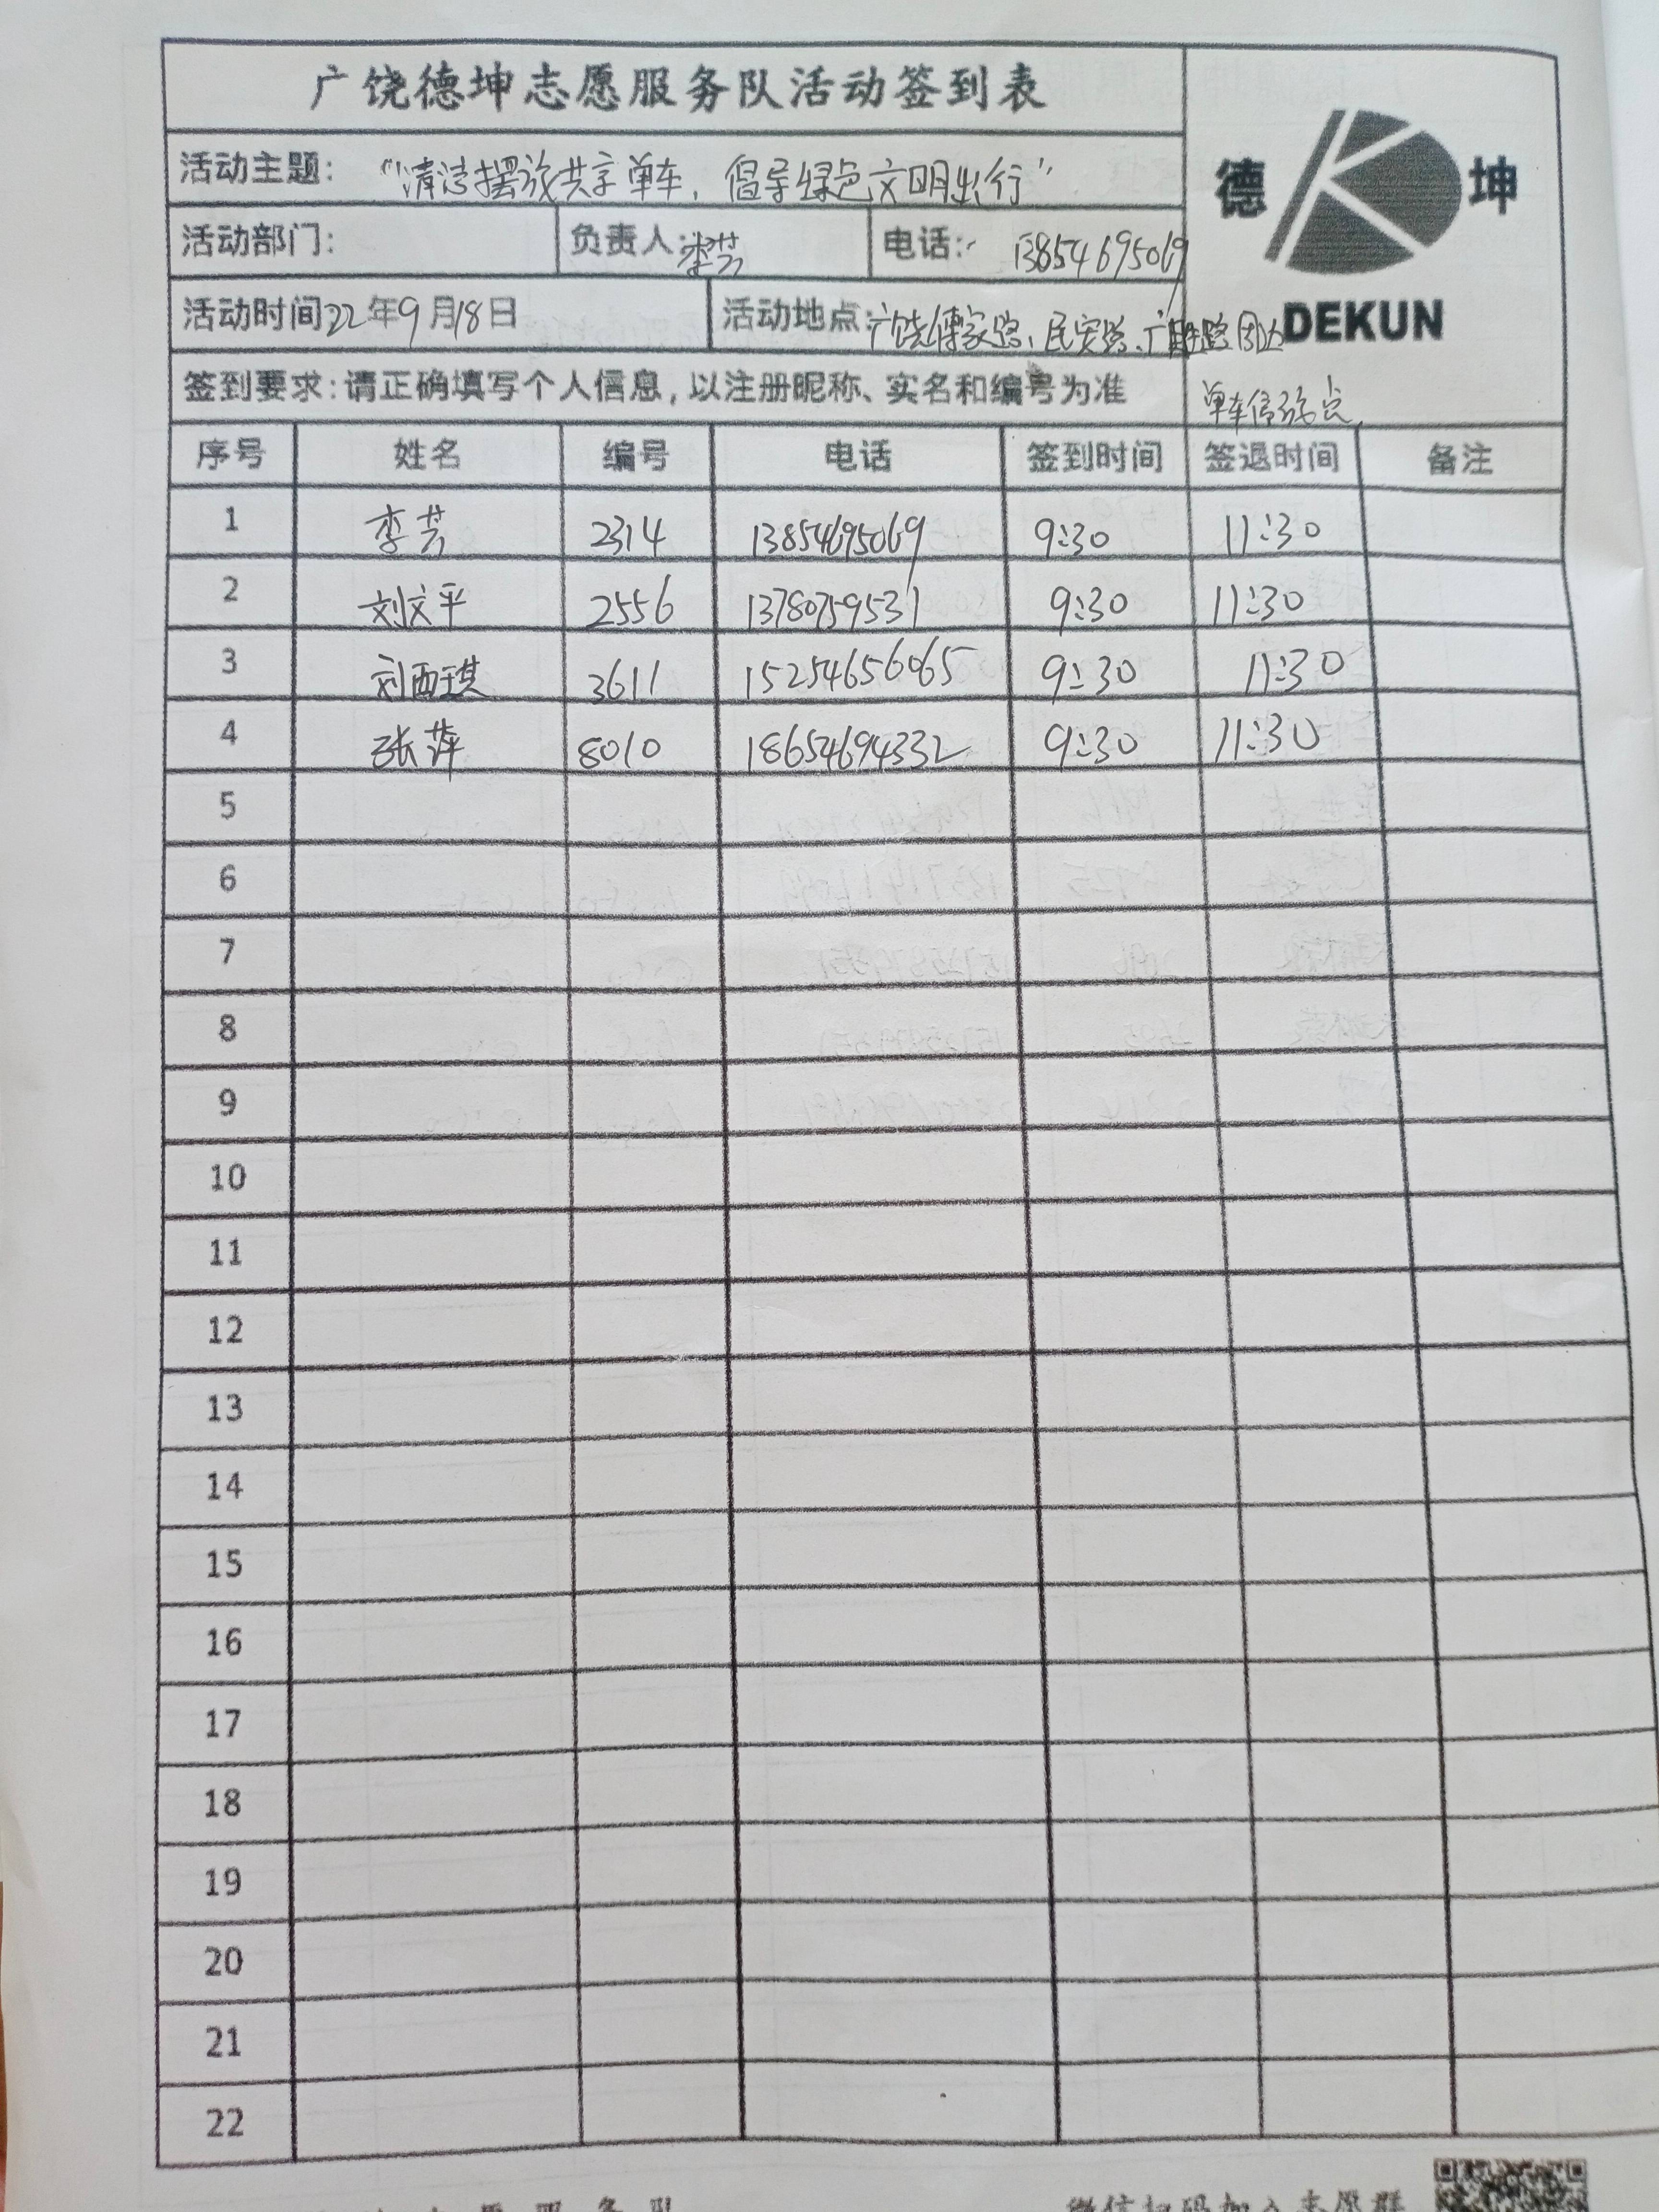 广饶德坤志愿服务队活动签到表
活动主题："清洁摆放共享单车，倡导绿色文明出行"
德 坤
活动部门： 负责人：李芸 电话： 13854695069
活动时间22年9月18日 活动地点：广饶傅家路、民安路、广 路 团达
DEKUN
签到要求：请正确填写个人信息，以注册昵称、实名和编号为准
单车停放点
序号 姓名 编号 电话 签到时间 签退时间 备注
1 李芸 2314 13854695069 9:30 11:30
2 刘文平 2556 13780759531 9:30 11:30
3 刘西琪 3611 15254656065 9:30 11:30
4 张萍 8010 18654694332 9:30 11:30
5
6
7
8
9
10
11
12
13
14
15
16
17
18
19
20
21
22
微信扫码加入志愿群